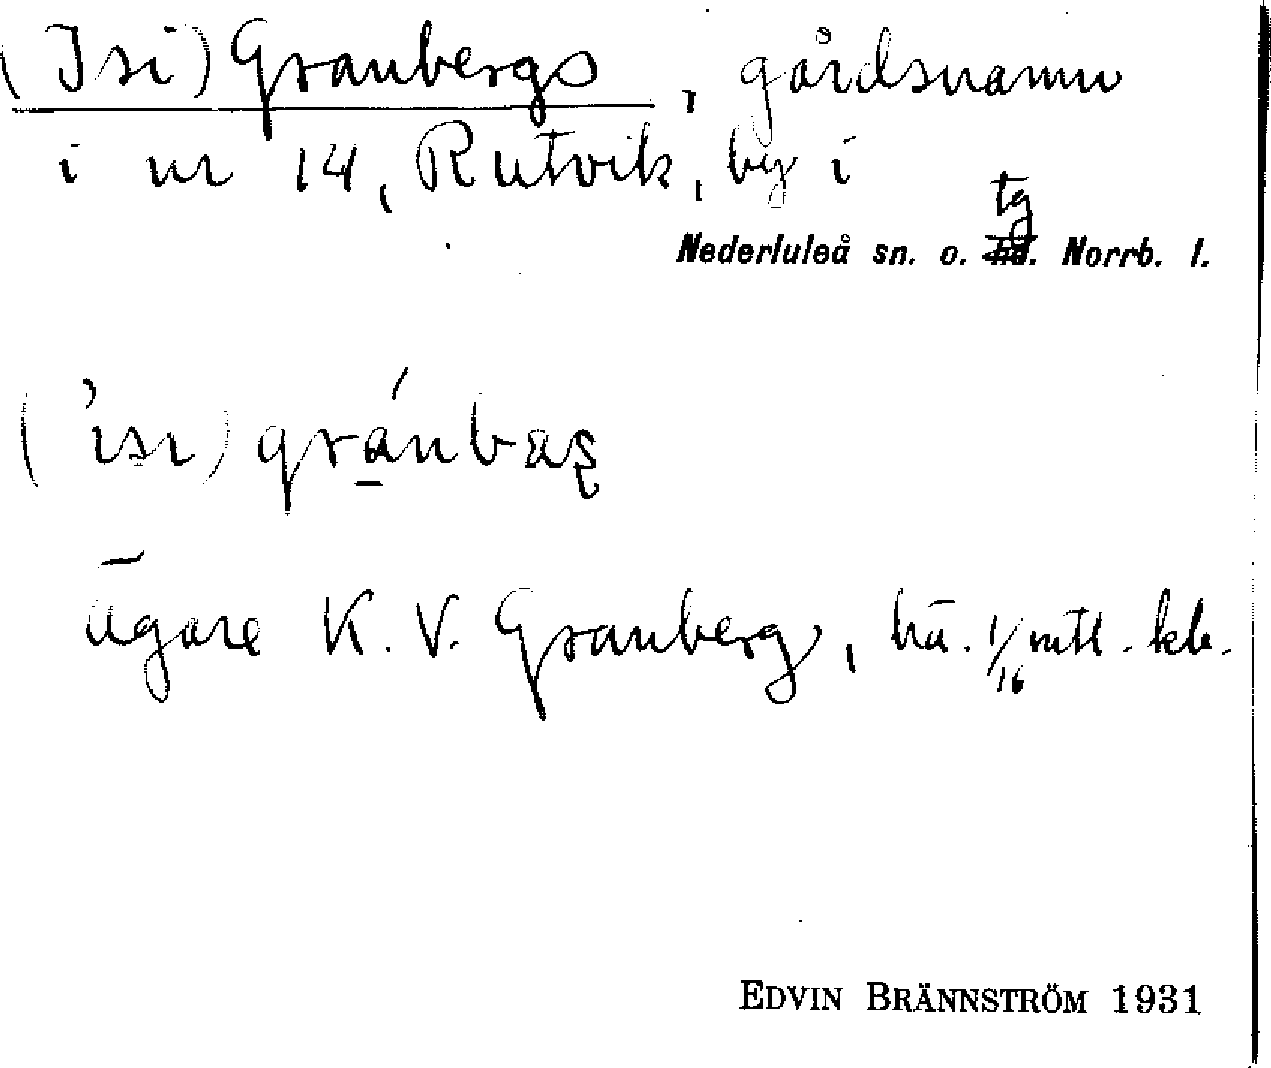 (Isi) Granbergs, gårdsnamn
i nr 14, Rutvik, by i
tg
Nederluleå sn. o. hd. Norrb. l.
(ˈısı) gránbas̨
Ägare K. V. Granberg, hä. 1/16 mtl. kb.
EDVIN BRÄNNSTRÖM 1931